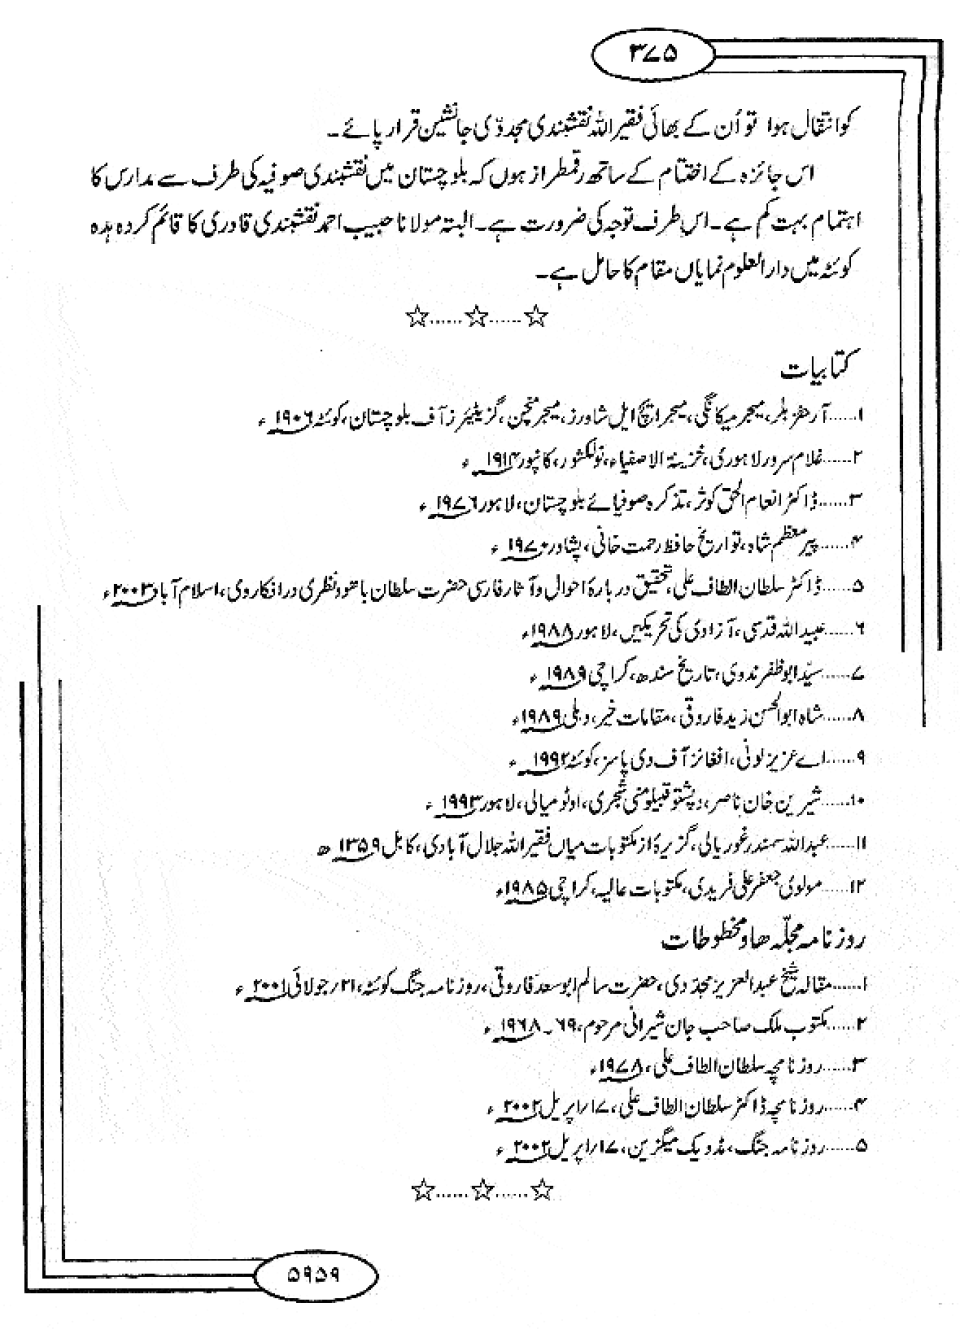 ۳۷۵
کو انتقال ہوا تو اُن کے بھائی فقیر اللہ نقشبندی مجددّی جانشین قرار پائے۔
اس جائزہ کے اختتام کے ساتھ رقمطراز ہوں کہ بلوچستان میں نقشبندی صوفیہ کی طرف سے مدارس کا
اہتمام بہت کم ہے۔ اس طرف توجہ کی ضرورت ہے۔ البتہ مولانا حبیب احمد نقشبندی قادری کا قائم کردہ ہدہ
کوئٹہ میں دارالعلوم نمایاں مقام کا حامل ہے۔
☆......☆......☆
کتابیات
۱......آرھفر بٹر، میجر میکانگی، میجر ایچ ایل شاورز، میجر منچن، گزیٹیئرز آف بلوچستان، کوئٹہ ۱۹۰۶ء
۲......غلام سرور لاہوری، خزینۃ الاصفیاء، نولکشور، کانپور ۱۹۱۴ء
۳......ڈاکٹر انعام الحق کوثر، تذکرہ صوفیائے بلوچستان، لاہور ۱۹۷۶ء
۴......پیر معظم شاہ، تواریخ حافظ رحمت خانی، پشاور ۱۹۷۰ء
۵......ڈاکٹر سلطان الطاف علی، تحقیق دربارۂ احوال و آثار فارسی حضرت سلطان باھو و نظری در افکار وی، اسلام آباد ۲۰۰۳ء
۶......عبید اللہ قدسی، آزادی کی تحریکیں، لاہور ۱۹۸۸ء
۷......سیّد ابو ظفر ندوی، تاریخ سندھ، کراچی ۱۹۸۹ء
۸......شاہ ابوالحسن زید فاروقی، مقامات خیر، دہلی ۱۹۸۹ء
۹......اے عزیز لونی، افغانز آف دی پاسز، کوئٹہ ۱۹۹۲ء
۱۰......شیرین خان ناصر، د پشتو قبیلو منی شجری، اوٹو میالی، لاہور ۱۹۹۳ء
۱۱......عبد اللہ سمندر غوریالی، گزیرۂ از مکتوبات میاں فقیر اللہ جلال آبادی، کابل ۱۳۵۹ھ
۱۲......مولوی جعفر علی فریدی، مکتوبات عالیہ، کراچی ۱۹۸۵ء
روزنامہ مجلّہ ھا و مخطوطات
۱......مقالہ شیخ عبدالعزیز مجدّدی، حضرت سالم ابو سعد فاروقی، روزنامہ جنگ کوئٹہ، ۲۱/جولائی ۲۰۰۱ء
۲......مکتوب ملک صاحب جان شیرانی مرحوم، ۶۹۔۱۹۶۸ء
۳......روزنامچہ سلطان الطاف علی، ۱۹۷۸ء
۴......روزنامچہ ڈاکٹر سلطان الطاف علی، ۱۷/اپریل ۲۰۰۲ء
۵......روزنامہ جنگ، مڈویک میگزین، ۱۷/اپریل ۲۰۰۲ء
☆......☆......☆
۵۹۵۹